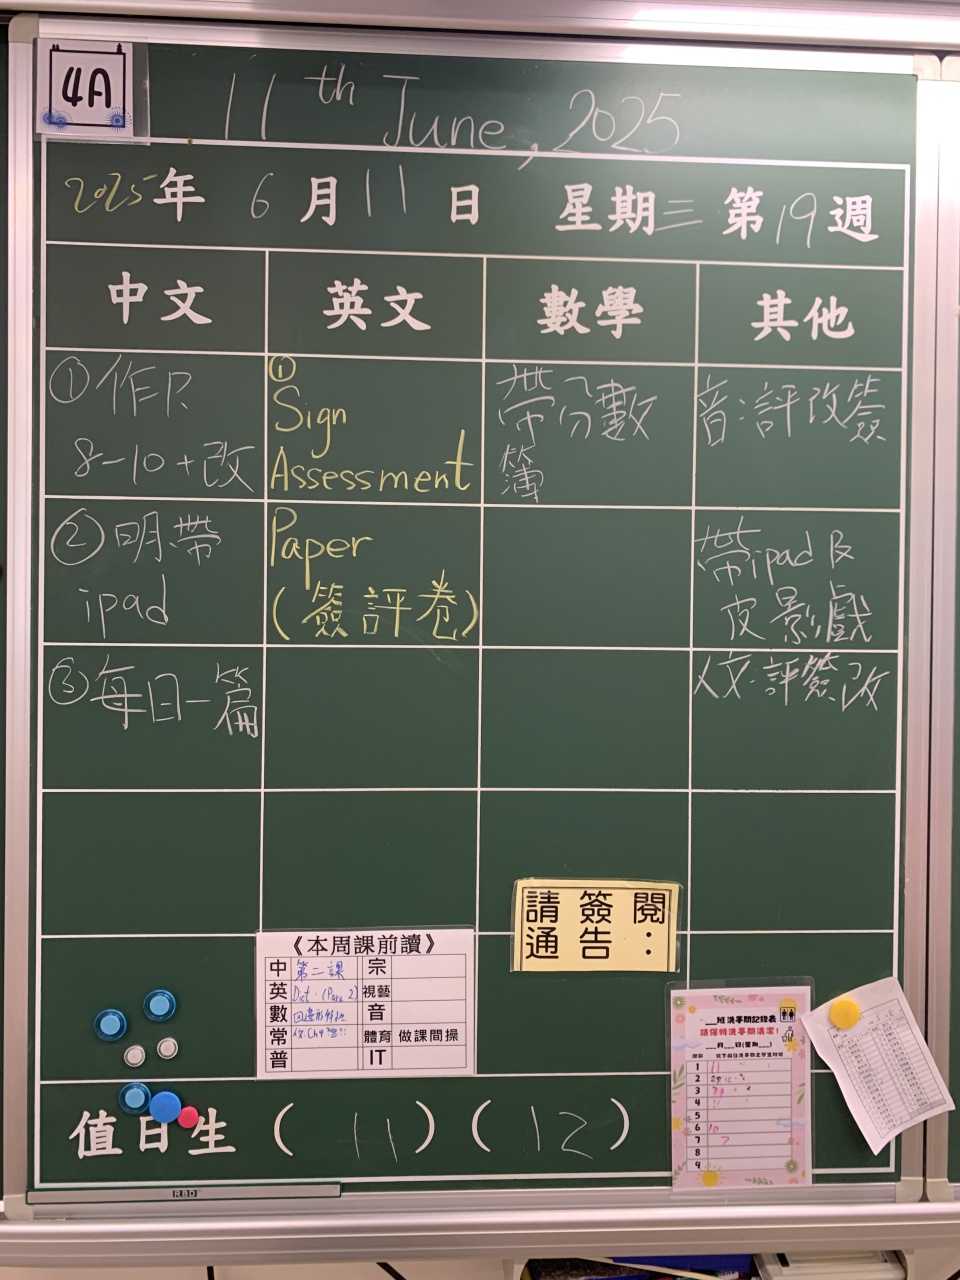 4A
11th June, 2025
2025年 6月11日 星期三 第19週
中文 英文 數學 其他
①作P.
8-10+改
②明帶
ipad
③每日一篇
①
Sign
Assessment
Paper
(簽評卷)
帶分數
簿
音:評改簽
帶ipad及
皮影戲
人文:評簽改
請簽閱
通告:
《本周課前讀》
中 第二課 宗
英 Dict. (Para 2) 視藝
數 四邊形 音
常 體育 做課間操
普 IT
班洗手間記錄表
請保持洗手間清潔!
月 日(星期 )
1 11
2
3
4
5
6 10
7 7
8
9
值日生 (11)(12)
RBD